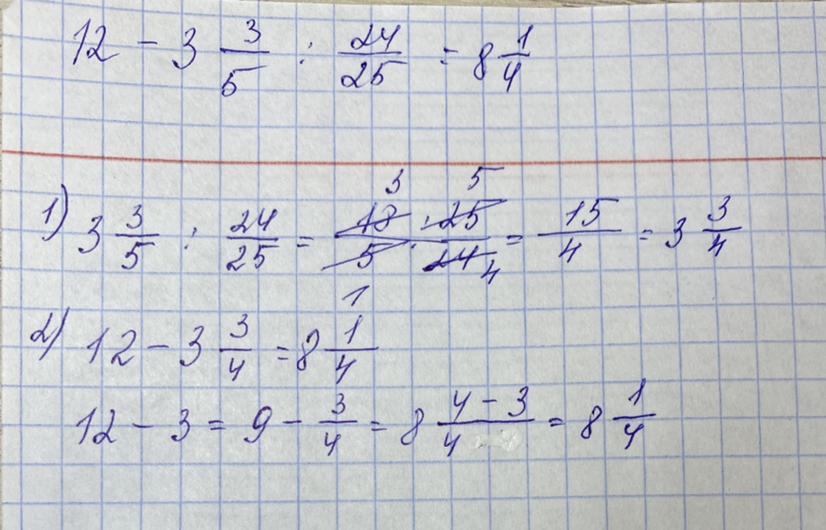 12 - 3 3/5 : 24/25 = 8 1/4
1) 3 3/5 : 24/25 = 18 3 · 25 5 / 5 1 · 24 4 = 15/4 = 3 3/4
2) 12 - 3 3/4 = 8 1/4
12 - 3 = 9 - 3/4 = 8 4-3/4 = 8 1/4